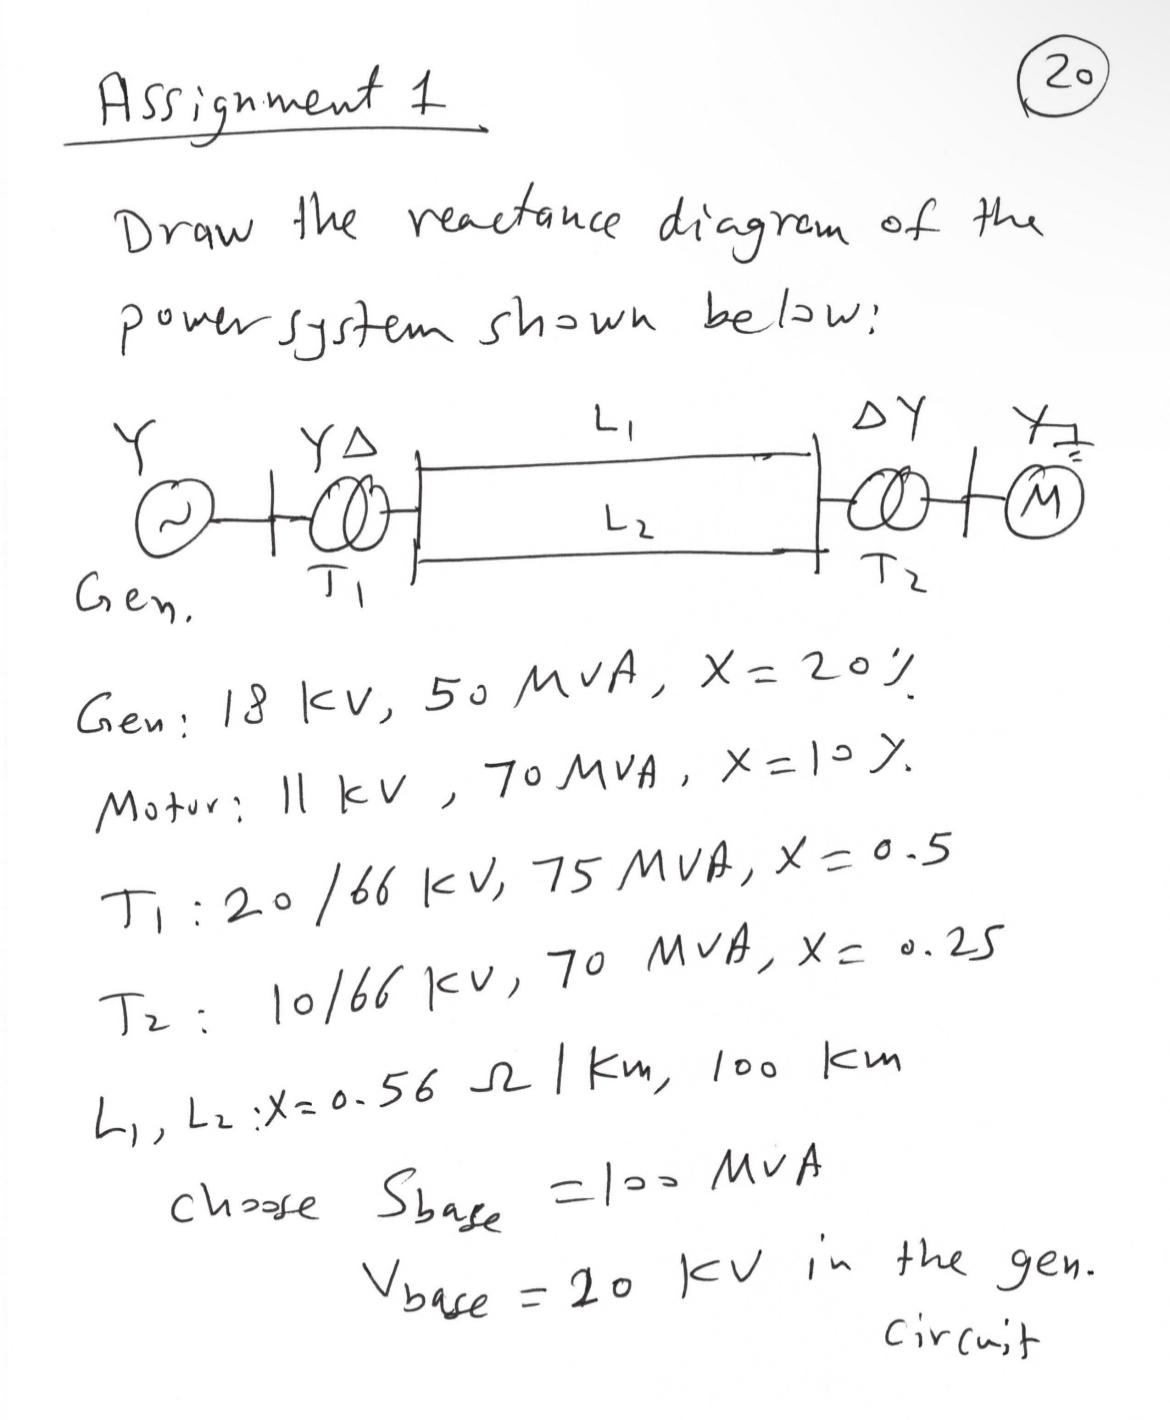 Assignment 1
20
Draw the reactance diagram of the
power system shown below:
Y YΔ L1 ΔY Y
L2 M
Gen. T1 T2
Gen: 18 KV, 50 MVA, X = 20%
Motor: 11 KV, 70 MVA, X = 10%
T1 : 20/66 KV, 75 MVA, X = 0.5
T2 : 10/66 KV, 70 MVA, X = 0.25
L1, L2 : X = 0.56 Ω / Km, 100 Km
choose Sbase = 100 MVA
Vbase = 20 KV in the gen.
circuit